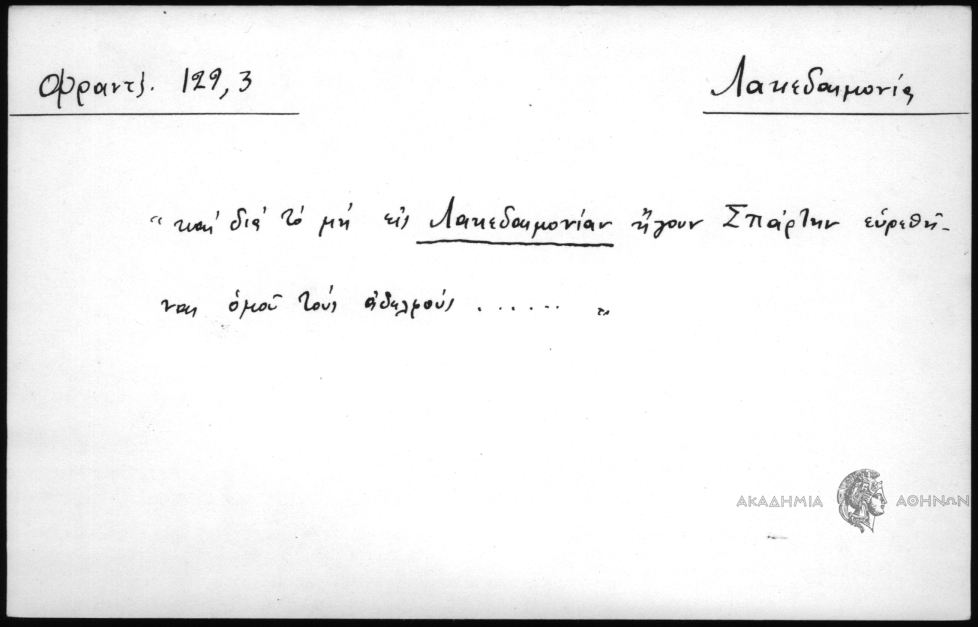 Φραντζ. 129, 3
Λακεδαιμονία
“ καὶ διὰ τὸ μὴ εἰς Λακεδαιμονίαν ἤγουν Σπάρτην εὑρεθῆ-
ναι ὁμοῦ τοὺς ἀδελφούς ...... „
ΑΚΑΔΗΜΙΑ ΑΘΗΝΩΝ